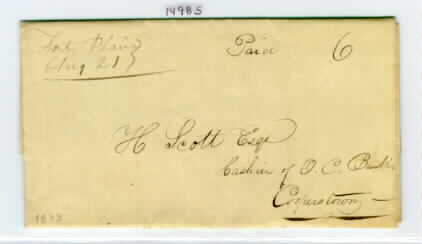 14985
Fort Plain
Aug 21
Paid 6
H Scott Esqr
Cashier of O. C. Bank
Cooperstown